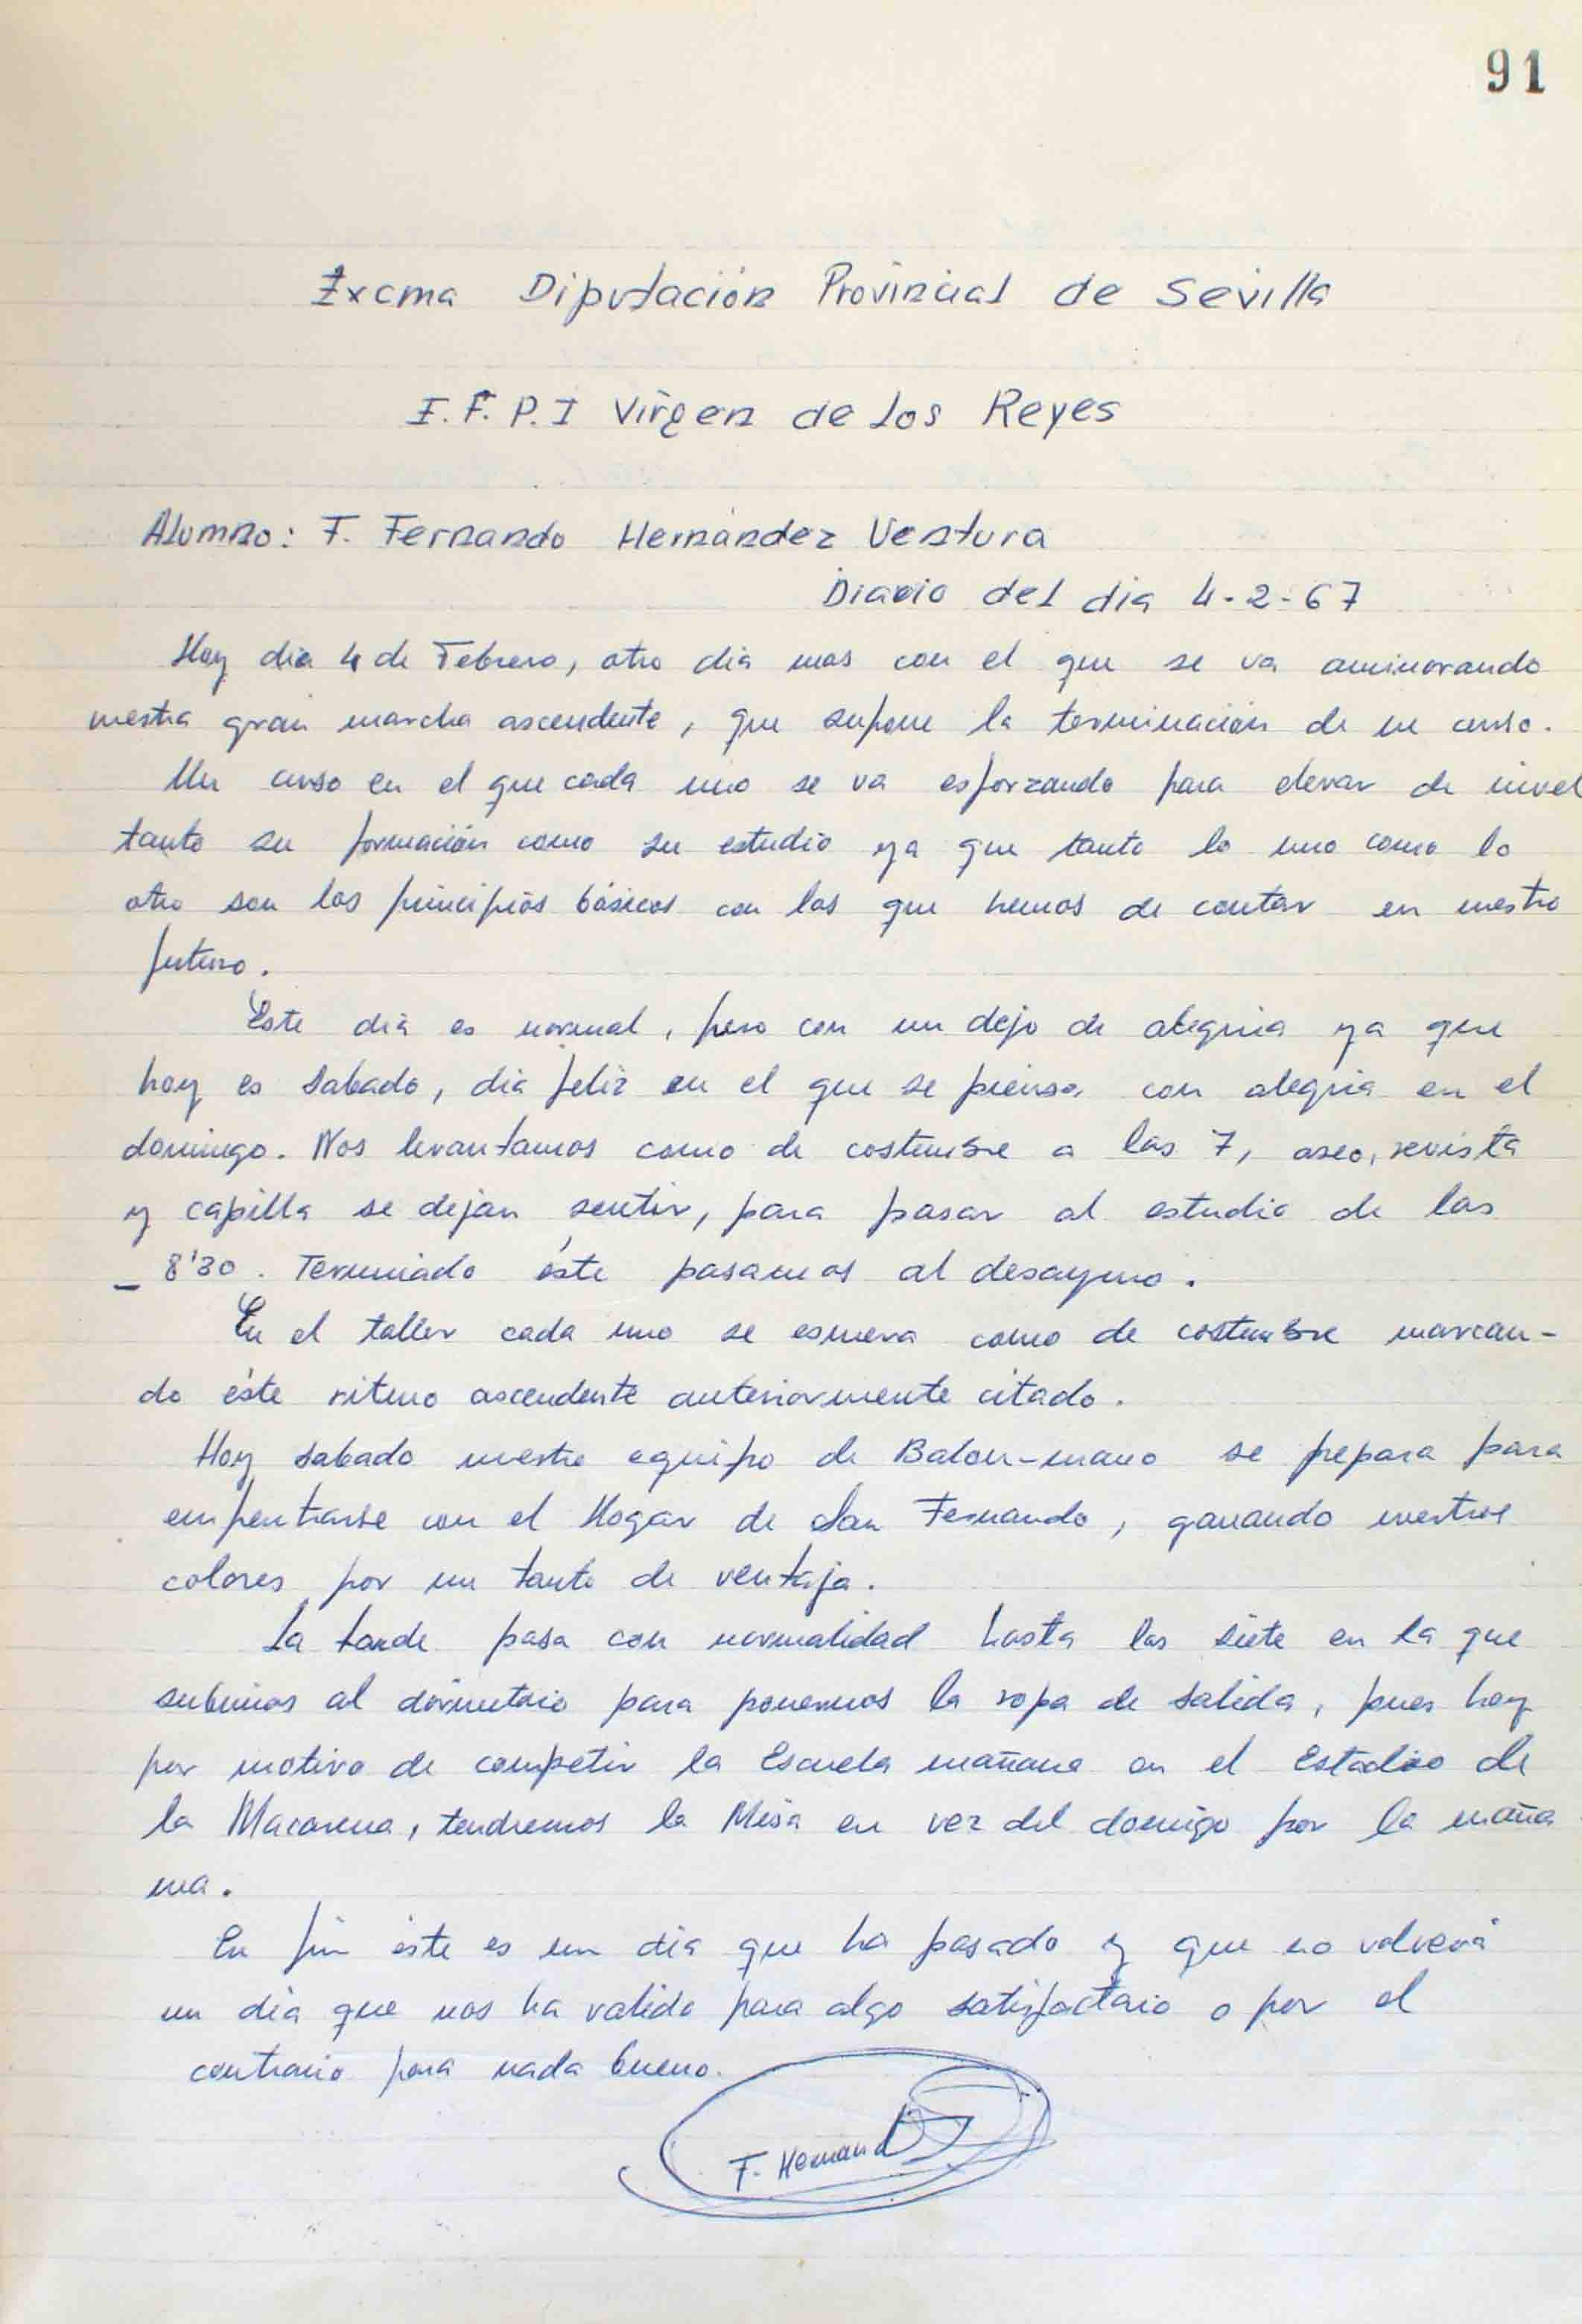 91
Excma Diputación Provincial de Sevilla
I.F.P.I Virgen de los Reyes
Alumno: F. Fernando Hernández Ventura
Diario del dia 4-2-67
Hoy dia 4 de Febrero, otro dia mas con el que se va aminorando
nuestra gran marcha ascendente, que supone la terminación de un curso.
Un curso en el que cada uno se va esforzando para elevar de nivel
tanto su formación como su estudio ya que tanto lo uno como lo
otro son los principios básicos con los que hemos de contar en nuestro
futuro.
Este dia es normal, pero con un dejo de alegria ya que
hoy es sabado, dia feliz en el que se piensa con alegria en el
domingo. Nos levantamos como de costumbre a las 7, aseo, revista
y capilla se dejan sentir, para pasar al estudio de las
- 8'30. Terminado éste pasamos al desayuno.
En el taller cada uno se esmera como de costumbre marcan-
do éste ritmo ascendente anteriormente citado.
Hoy sabado nuestro equipo de Balon-mano se prepara para
enfrentarse con el Hogar de San Fernando, ganando nuestros
colores por un tanto de ventaja.
La tarde pasa con normalidad hasta las siete en la que
subimos al dormitorio para ponernos la ropa de salida, pues hoy
por motivo de competir la Escuela mañana en el Estadio de
la Macarena, tendremos la Misa en vez del domigo por la maña
na.
En fin éste es un dia que ha pasado y que no volverá
un dia que nos ha valido para algo satisfactorio o por el
contrario para nada bueno.
F. Hernand